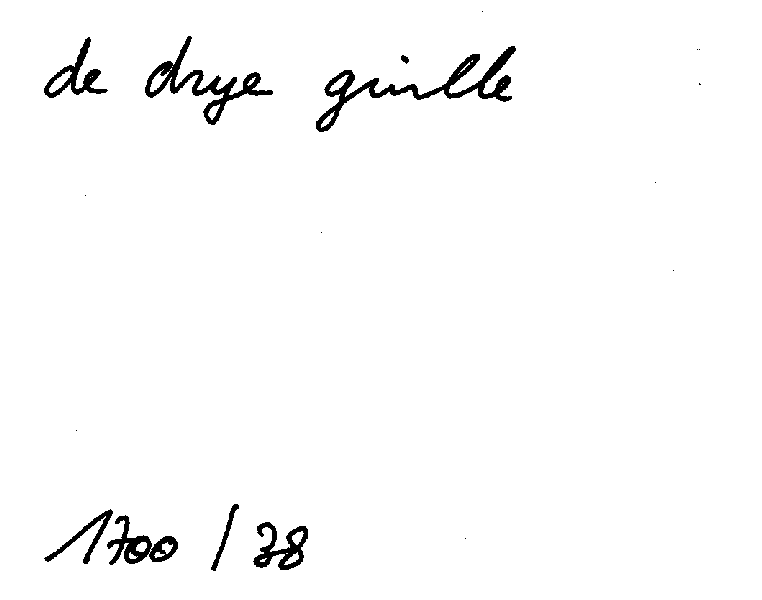 de drye guille
1700 / 38